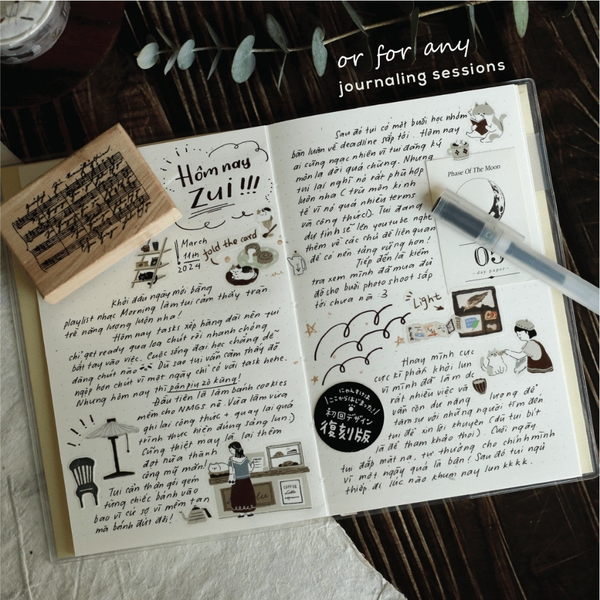 or for any
journaling sessions
Hôm nay
zui!!!
March
11th
2024
fold the card
Khởi đầu ngày mới bằng
playlist nhạc Morning làm tui cảm thấy tràn
trề năng lượng luôn ha!
Hôm nay tasks xếp hàng dài nên tui
chỉ get ready qua loa chút rồi nhanh chóng
bắt tay vào việc. Cuộc sống đại học chẳng dễ
dàng chút nào. Dù sao tui vẫn cảm thấy đỡ
ngộp hơn chút vì một ngày chỉ có vài task hehe.
Nhưng hôm nay thì
Đầu tiên là làm bánh cookies
mềm cho NMGS nè. Vừa làm vừa
ghi lại công thức + quay lại quá
trình thực hiện đúng sáng lun:)
Cũng thiệt may là lại thêm
đợt nửa thành
công mỹ mãn!
Tui cẩn thận gói gém
từng chiếc bánh vào
bao vì cứ sợ vì mềm
mà bánh đứt đôi!
COFFEE
Sau đó tụi có một buổi học nhóm
bàn luận về deadline sắp tới. Hôm nay
ai cũng ngạc nhiên vì tui đăng ký
môn lạ đời quá chừng. Nhưng
tui lại nghĩ nó rất phù hợp
luôn nha (trừ môn kinh
tế vĩ nó quá nhiều terms
và công thức:)). Tui đang
dự tính sẽ lên youtube nghe
thêm về các chủ đề liên quan
để có nền tảng vững hơn!
Tiếp đến là kiểm
tra xem mình đã mua đủ
đồ cho buổi photo shoot sắp
tới chưa nà :3
Phase Of The Moon
03
day paper
Light
Hnay mình cực
cực kì phấn khởi lun
vì mình đã làm đc
rất nhiều việc và
vẫn còn dư năng lượng để
tâm sự với những người tìm đến
tui để xin lời khuyên (dù tui bít
là để tham khảo thoi). Cuối ngày
tui đắp mặt nạ, tự thưởng cho chính mình
vì một ngày quá là bận! Sau đó tui ngủ
thiếp đi lúc nào khum nay lun kkkk.
にゃんすけは
ここからはじまった!
初回デザイン
復刻版